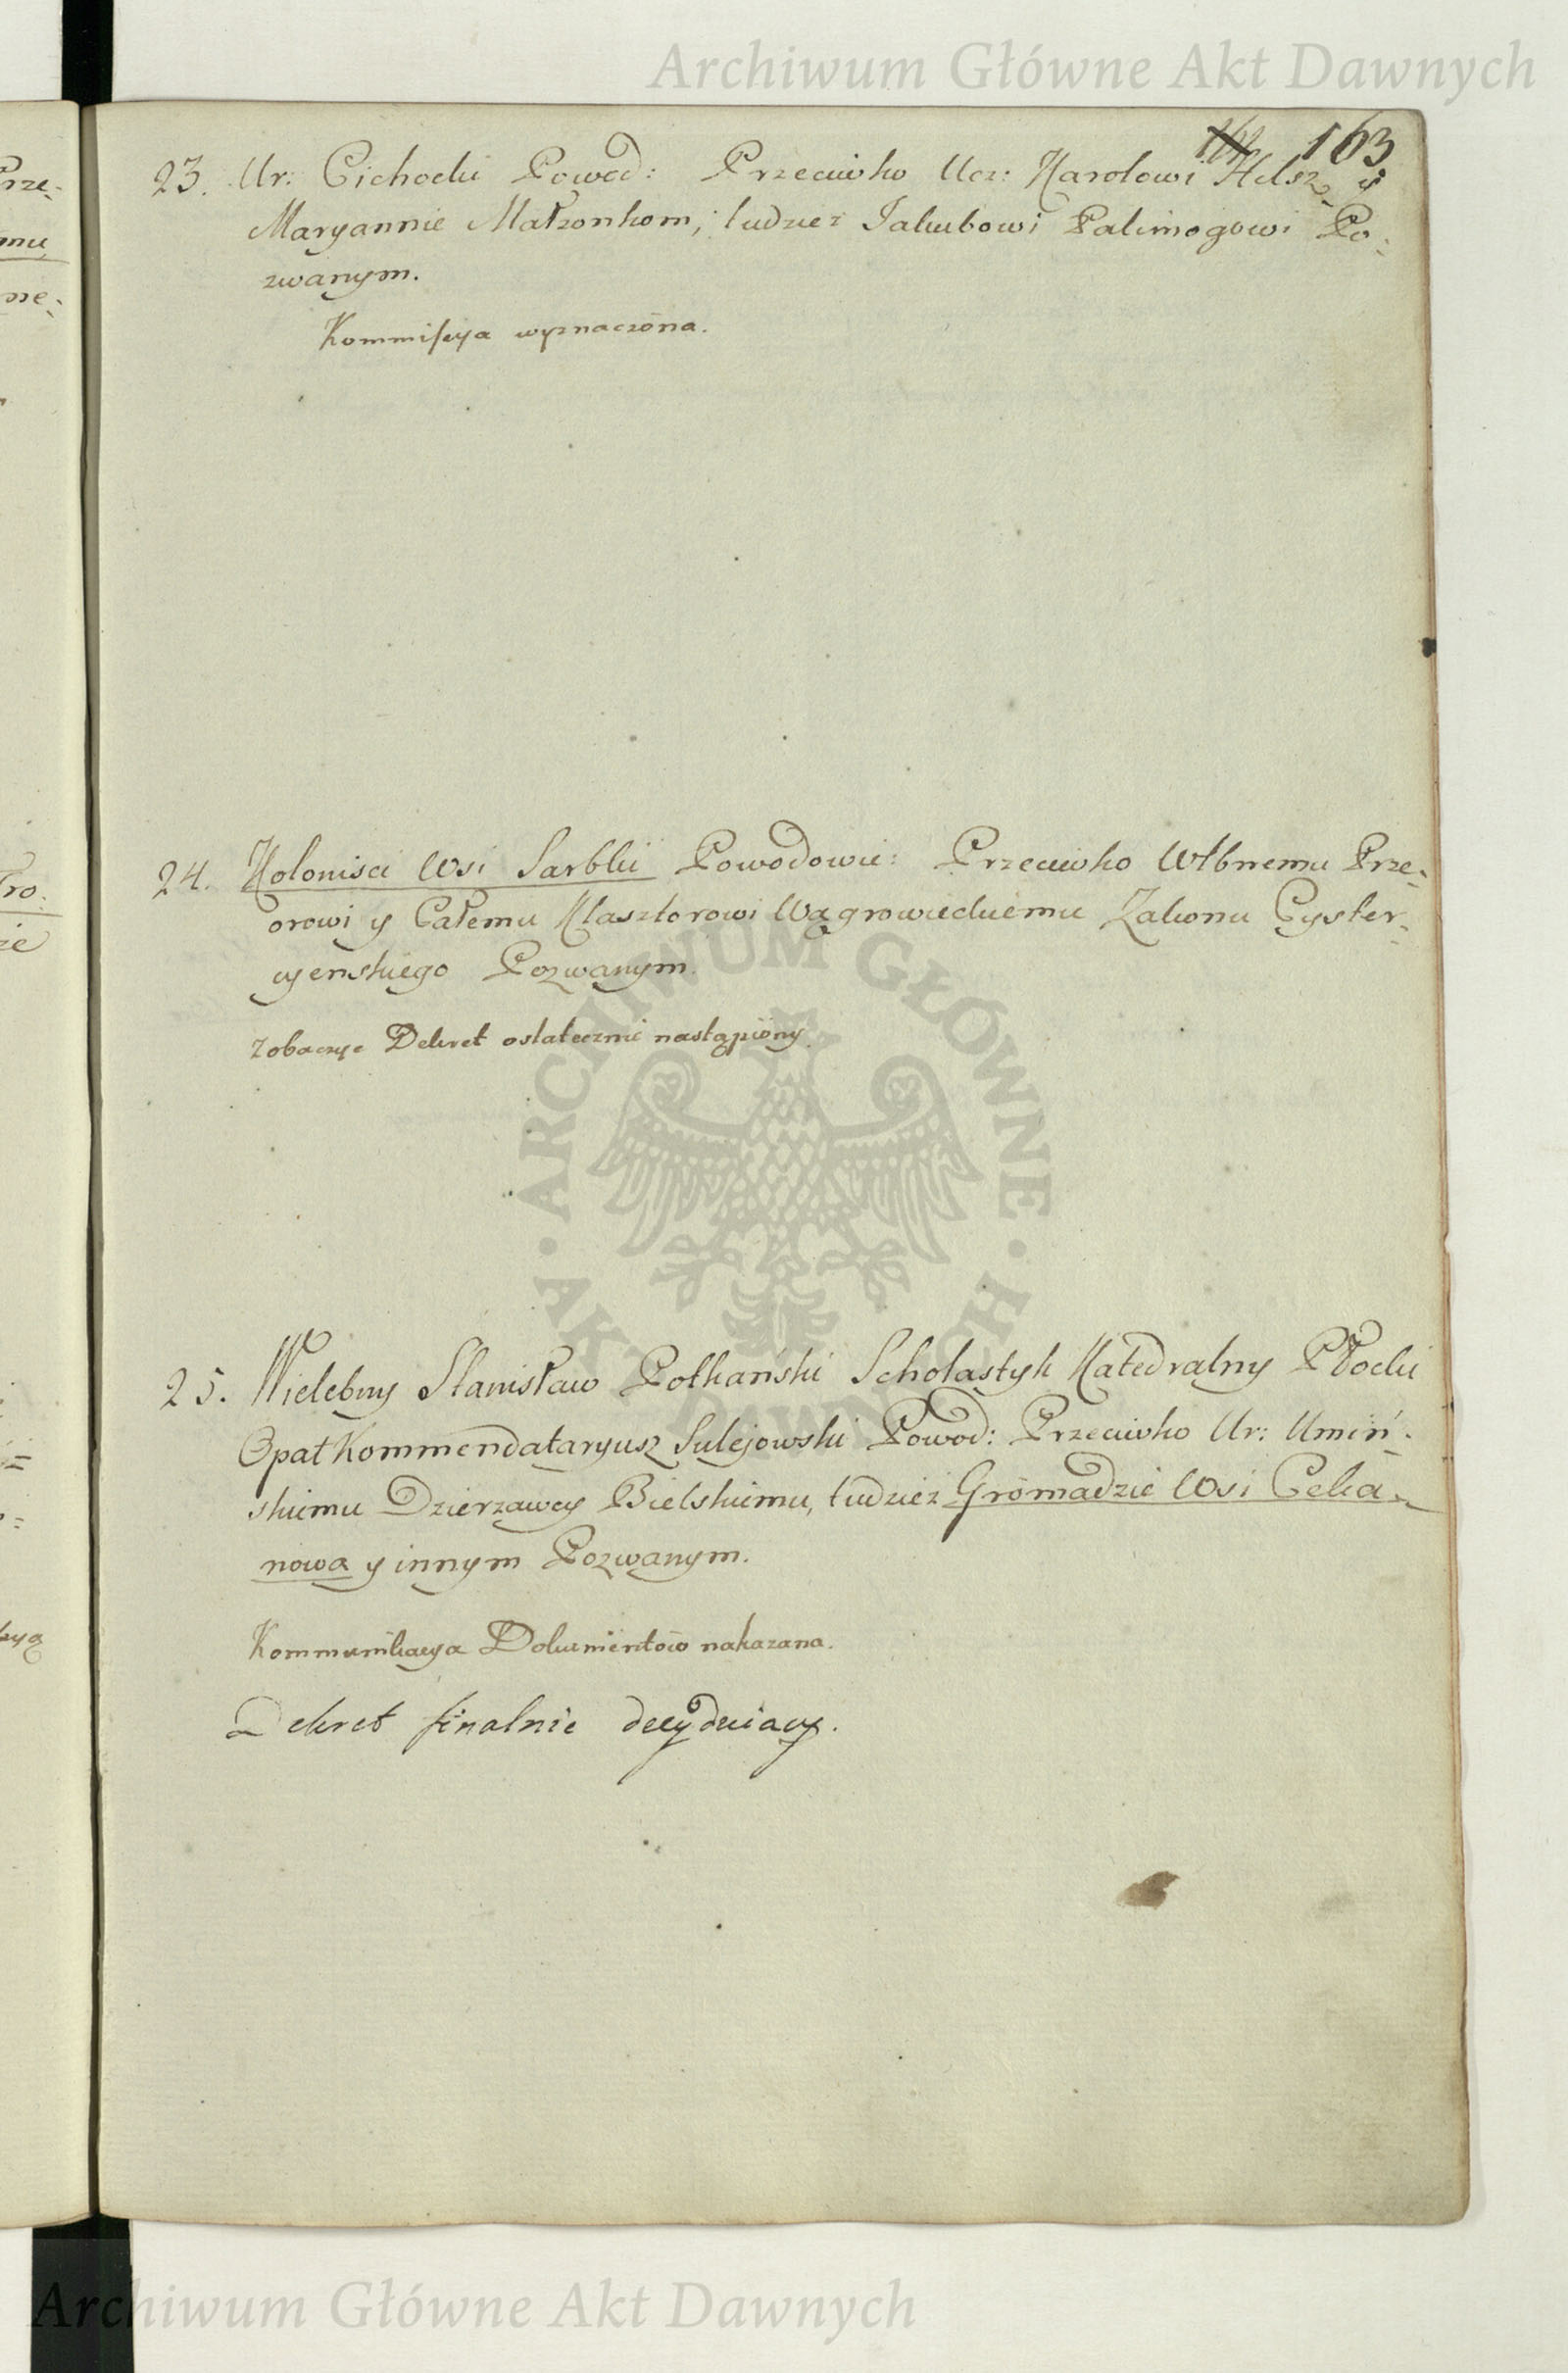 Archiwum Główne Akt Dawnych
163
23. Ur: Cichocki Powod: Przeciwko Ucz: Karolowi y
Maryannie Małzonkom, tudziez Jakubowi Palimogowi Po-
zwanym.
Kommissya wyznaczona.
24. Kolonisci Wsi Sarbki Powodowie: Przeciwko Włbnemu Prze-
orowi y Całemu Klasztorowi Wągrowieckiemu Zakonu Cyster-
cyenskiego Pozwanym.
Zobaczyc Dekret ostatecznie nastąpiony.
25. Wielebny Stanisław Połkański Scholastyk Katedralny Płocki
Opat Kommendataryusz Sulejowski Powod: Przeciwko Ur: Umiń-
skiemu Dzierzawcy Bielskiemu, tudziez Gromadzie Wsi Ceka-
nowa y innym Pozwanym.
Kommunikacya Dokumentow nakazana.
Dekret finalnie decyduiacy.
ARCHIWUM GŁÓWNE · AKT DAWNYCH ·
Archiwum Główne Akt Dawnych